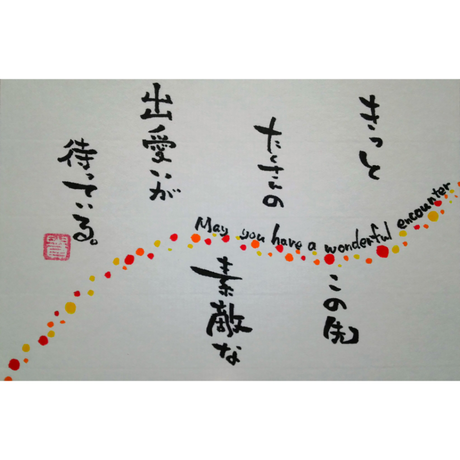 きっと
この先
たくさんの
素敵な
出愛いが
待っている。
May you have a wonderful encounter